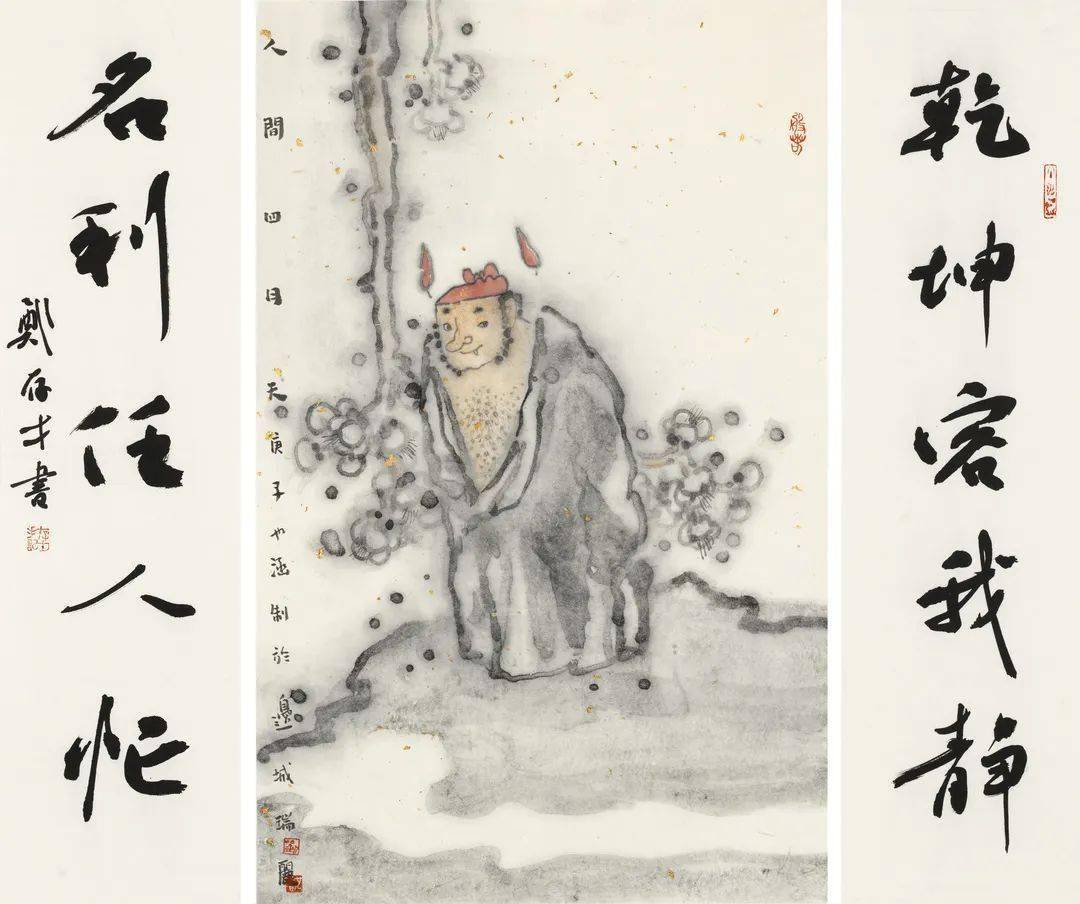 乾坤容我静
人間四月天庚子也涵制於邊城瑞麗
名利任人忙
鄭存才書